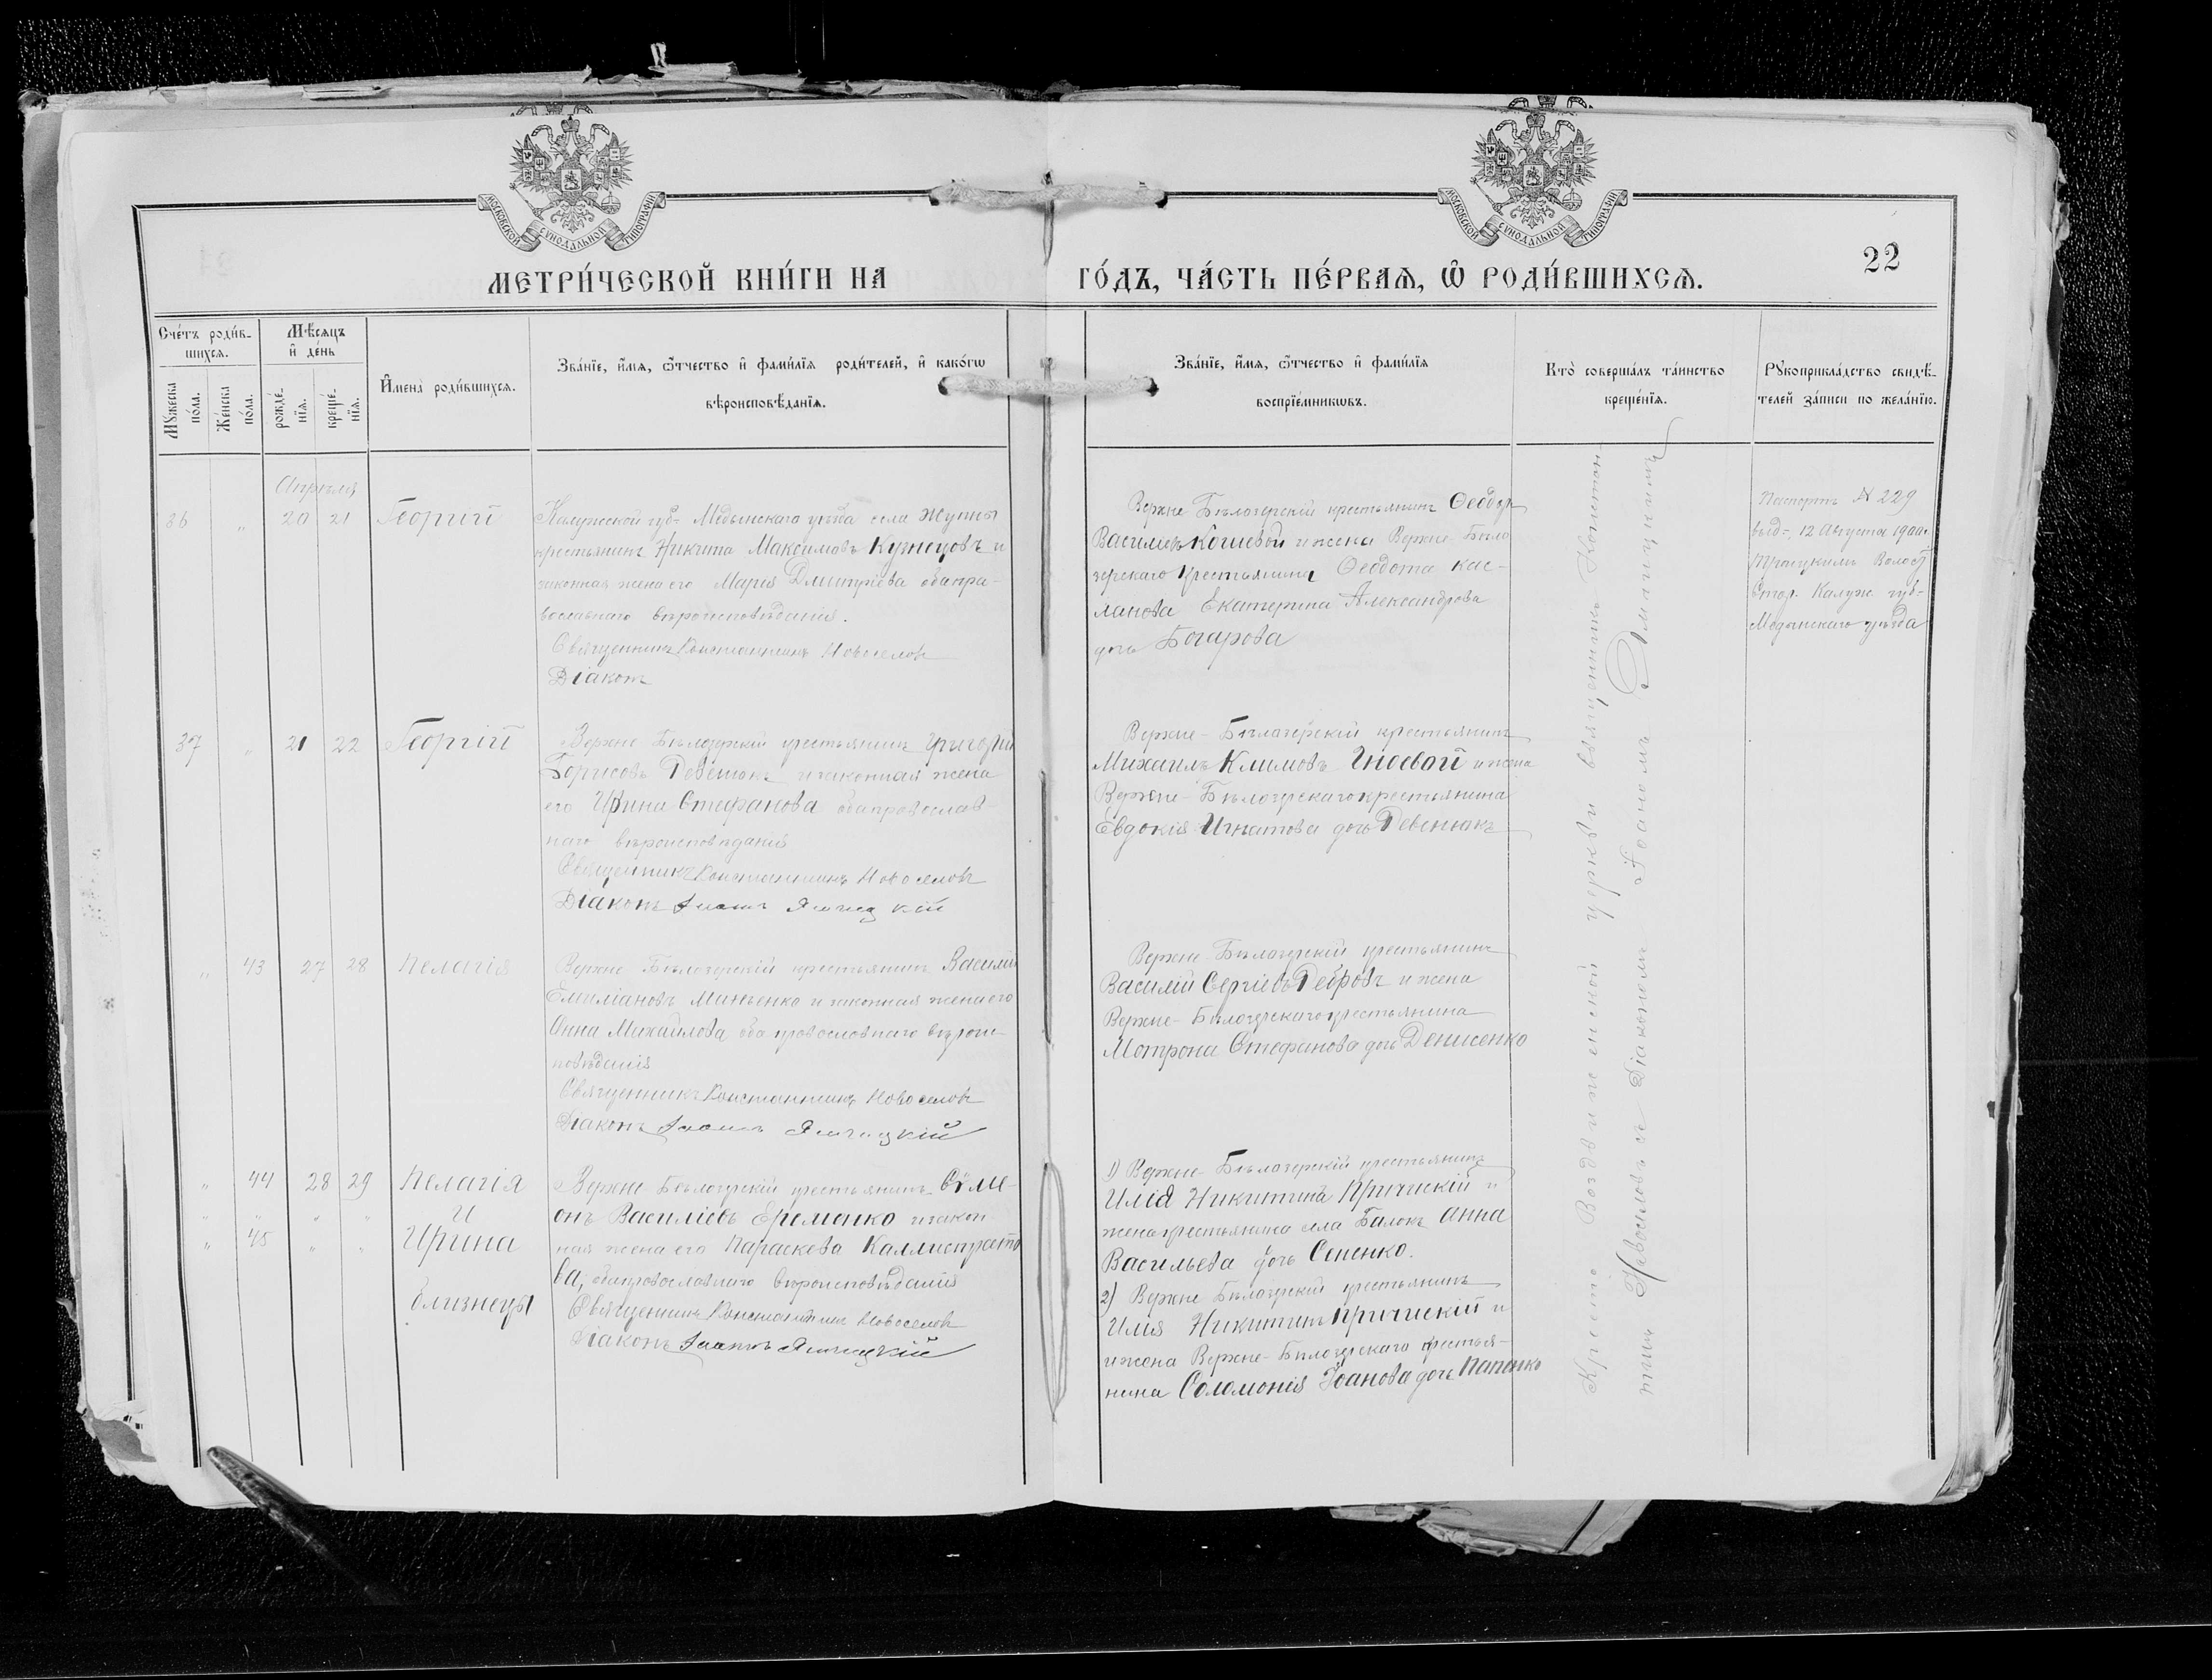 МОСКОВСКОЙ СУНОДАЛЬНОЙ ТИПОГРАФІИ
МОСКОВСКОЙ СУНОДАЛЬНОЙ ТИПОГРАФІИ
22
МЕТРИ́ЧЕСКОЙ КНИ́ГИ НА ГО́ДЪ, ЧА́СТЬ ПЕ́РВАѦ, Ѡ РОДИ́ВШИХСѦ.
Сче́тъ роди́в-
шихсѧ.
Мѣ́сяцъ
и де́нь
Мꙋ́жеска
по́ла.
Же́нска
по́ла.
рожде́-
нїѧ.
креще́-
нїѧ.
Имена̀ роди́вшихсѧ.
Зва́нїе, и́мѧ, ѻ҆́тчество и фами́лїѧ роди́телей, и како́гѡ
вѣроисповѣ́данїѧ.
Зва́нїе, и́мѧ, ѻ҆́тчество и фами́лїѧ
воспрїе́мникѡвъ.
Кто̀ соверша́лъ та́инство
креще́нїѧ.
Рꙋкоприкла́дство свидѣ́-
телей за́писи по жела́нїю.
Апрѣля
36 " 20 21 Георгій
Калужской губ- Медынскаго уѣзда села Жупны
крестьянинъ Никита Максимовъ Кузнецовъ и
законная жена его Марія Дмитріева оба пра-
вославнаго вѣроисповѣданія.
Священникъ Константинъ Новоселовъ
Діаконъ
Верхне Бѣлозерскій крестьянинъ Ѳеодоръ
Василіевъ Кошевой и жена Верхне-Бѣло
зерскаго крестьянина Ѳеодота Кас-
ланова Екатерина Александрова
дочь Богарова
Паспортъ № 229
выд-, 12 Августа 1900 г.
Троицкимъ Волост
Стар. Калуж губ-
Медынскаго уѣзда
37 " 21 22 Георгій
Верхне Бѣлозерскій крестьянинъ Григорій
Борисовъ Ревенокъ и законная жена
его Ирина Стефанова оба православ-
наго вѣроисповѣданія
Священникъ Константинъ Новоселовъ
Діаконъ Іоаннъ
Верхне-Бѣлозерскій крестьянинъ
Михаилъ Климовъ Гноевой и жена
Верхне-Бѣлозерскаго крестьянина
Евдокія Игнатова дочь Ревенокъ
" 43 27 28 Пелагія
Верхне Бѣлозерскій крестьянинъ Василій
Емиліановъ Миненко и законная жена его
Анна Михайлова оба православнаго вѣроис-
повѣданія
Священникъ Константинъ Новоселовъ
Діаконъ Іоаннъ
Верхне-Бѣлозерскій крестьянинъ
Василій Сергіевъ Ребровъ и жена
Верхне-Бѣлозерскаго крестьянина
Мотрона Стефанова дочь Денисенко
" 44 28 29 Пелагія
" " " " и
" 45 " " Ирина
близнецы
Верхне Бѣлозерскій крестьянинъ Сѵме-
онъ Василіевъ Еременко и закон
ная жена его Параскева Каллистрато
ва, оба православнаго вѣроисповѣданія
Священникъ Константинъ Новоселовъ
Діаконъ Іоаннъ
1) Верхне-Бѣлозерскій крестьянинъ
Илія Никитинъ Кричискій и
жена крестьянина села Балокъ Анна
Васильева дочь Сененко.
2) Верхне Бѣлозерскій крестьянинъ
Илія Никитинъ Кричискій и
и жена Верхне-Бѣлозерскаго крестья-
нина Соломонія Іоанова дочь Папенко
Крестю Воздвиженской церкви священникъ Констан-
тинъ Новоселовъ и Діакономъ Іоаномъ